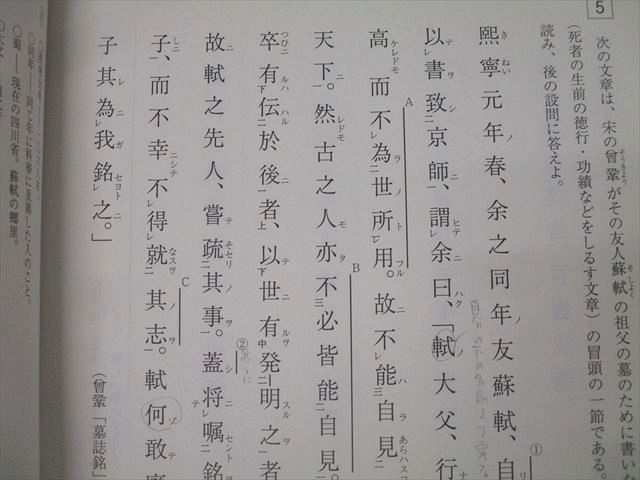 5
次の文章は、宋の曾鞏がその友人蘇軾の祖父の墓のために書いた
(死者の生前の徳行・功績などをしるす文章)の冒頭の一節である。
読み、後の設問に答えよ。
熙寧元年春、余之同年友蘇軾、自
以書致京師、謂余曰、「軾大父、行
高而不為世所用。故不能自見
天下。然古之人亦不必皆能自見。
卒有伝於後者、以世有発明之者
故軾之先人、嘗疏其事。蓋将嘱銘
子、而不幸不得就其志。軾何敢
子其為我銘之。」
(曾鞏「墓誌銘」
○同年――同じ年に科挙に及第した人のこと。
○蜀――現在の四川省。蘇軾の郷里。